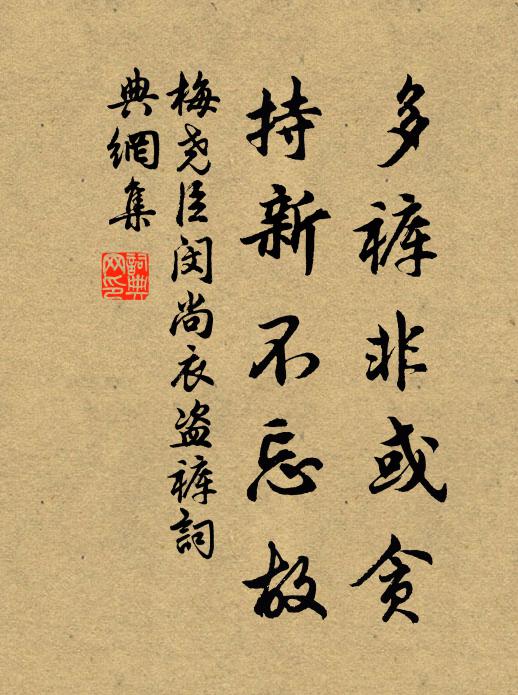 多裤非或贪
持新不忘故
梅尧臣闵尚衣盗裤詞
典網集
詞典
网印